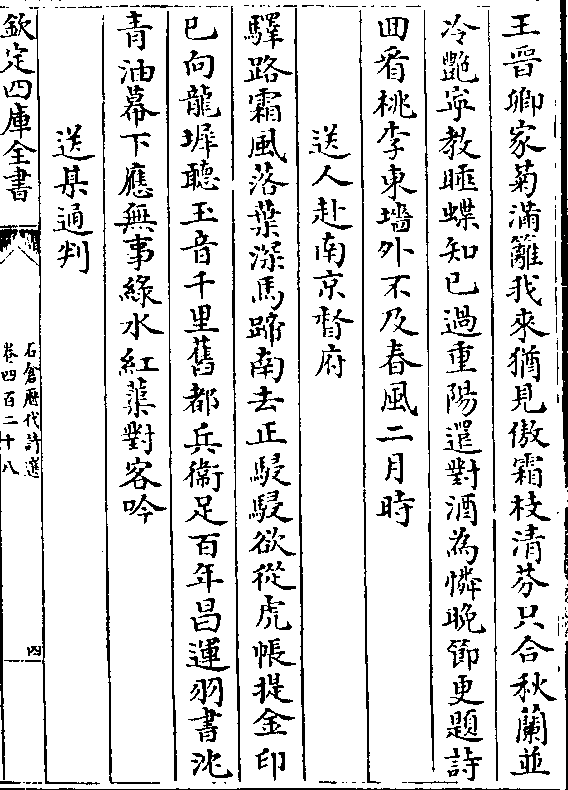 王晉卿家菊滿籬我來猶見傲霜枝清芬只合秋蘭並
冷艷寜教睡蝶知已過重陽還對酒為憐晚節更題詩
囬看桃李東墻外不及春風二月時
送人赴南京督府
驛路霜風落葉深馬蹄南去正駸駸欲從虎帳提金印
已向龍墀聽玉音千里舊都兵衛足百年昌運羽書沈
青油幕下應無事綠水紅蕖對客吟
送某通判
欽定四庫全書
石倉歷代詩選
卷四百二十八
四